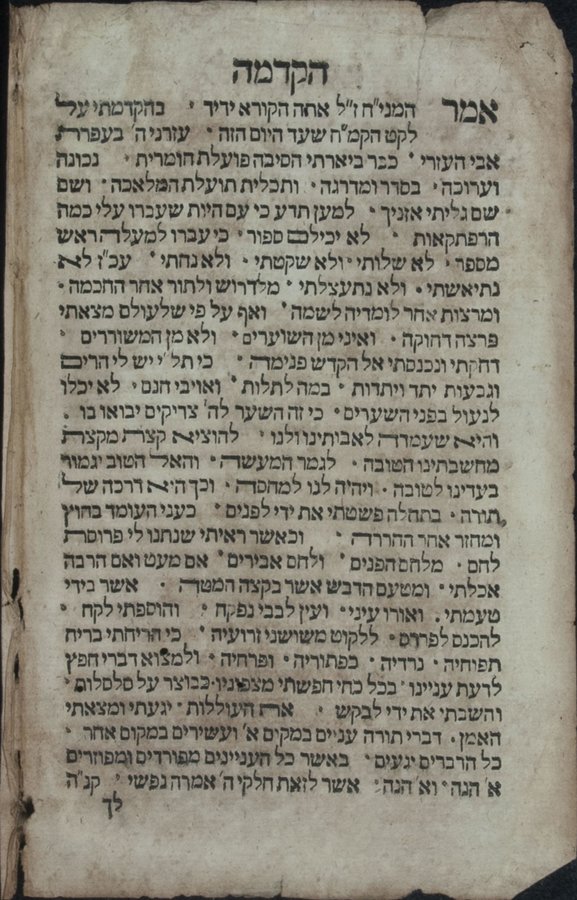 הקדמה
אמר המני"ח ז"ל אתה הקורא ידיד • בהקדמתי על
לקט הקמ"ח שעד היום הזה • עזרני ה' בעפרת
אבי העזרי • כבר ביארתי הסיבה פועלת חומרית • נכונה
וערוכה • בסדר ומדרגה • ותכלית תועלת המלאכה • ושם
שם גליתי אזניך • למען תדע כי עם היות שעברו עלי כמה
הרפתקאות • לא יכילם ספור • כי עברו למעלה ראש
מספר • לא שלותי • ולא שקטתי • ולא נחתי • עכ"ז לא
נתיאשתי • ולא נתעצלתי • מלדרוש ולתור אחר החכמה •
ומרצות אחר לומדיה לשמה • ואף על פי שלעולם מצאתי
פרצה דחוקה • ואיני מן השוערים • ולא מן המשוררים •
דחקתי ונכנסתי אל הקדש פנימה • כי תל"י יש לי הרים
וגבעות יתד ויתדות • במה לתלות • ואויבי חנם • לא יכלו
לנעול בפני השערים • כי זה השער לה' צדיקים יבואו בו •
והיא שעמדה לאבותינו ולנו • להוציא קצת מקצת
מחשבתינו הטובה • לגמר המעשה • והאל הטוב יגמור
בעדינו לטובה • ויהיה לנו למחסה • וכך היא דרכה של
תורה • בתחלה פשטתי את ידי לפנים • כעני העומד בחוץ
ומחזר אחר החררה • וכאשר ראיתי שנתנו לי פרוסת
לחם • מלחם הפנים • ולחם אבירים • אם מעט ואם הרבה
אכלתי • ומטעם הדבש אשר בקצה המטה • אשר בידי
טעמתי • ואורו עיני • ועין לבבי נפקח • והוספתי לקח •
להכנס לפרדס • ללקוט משושני זרועיה • כי הריחתי בריח
תפוחיה • נרדיה • כפתוריה • ופרחיה • ולמצוא דברי חפץ
לדעת עניינו • בכל כחי חפשתי מצפוניו • כבוצר על סלסלות •
והשבתי את ידי לבקש • את העוללות • יגעתי ומצאתי
האמן • דברי תורה עניים במקום א' ועשירים במקום אחר •
כל הדברים יגעים • באשר כל העניינים מפורדים ומפוזרים
א' הנה • וא' הנה • אשר לזאת חלקי ה' אמרה נפשי • קנ"ה
לך